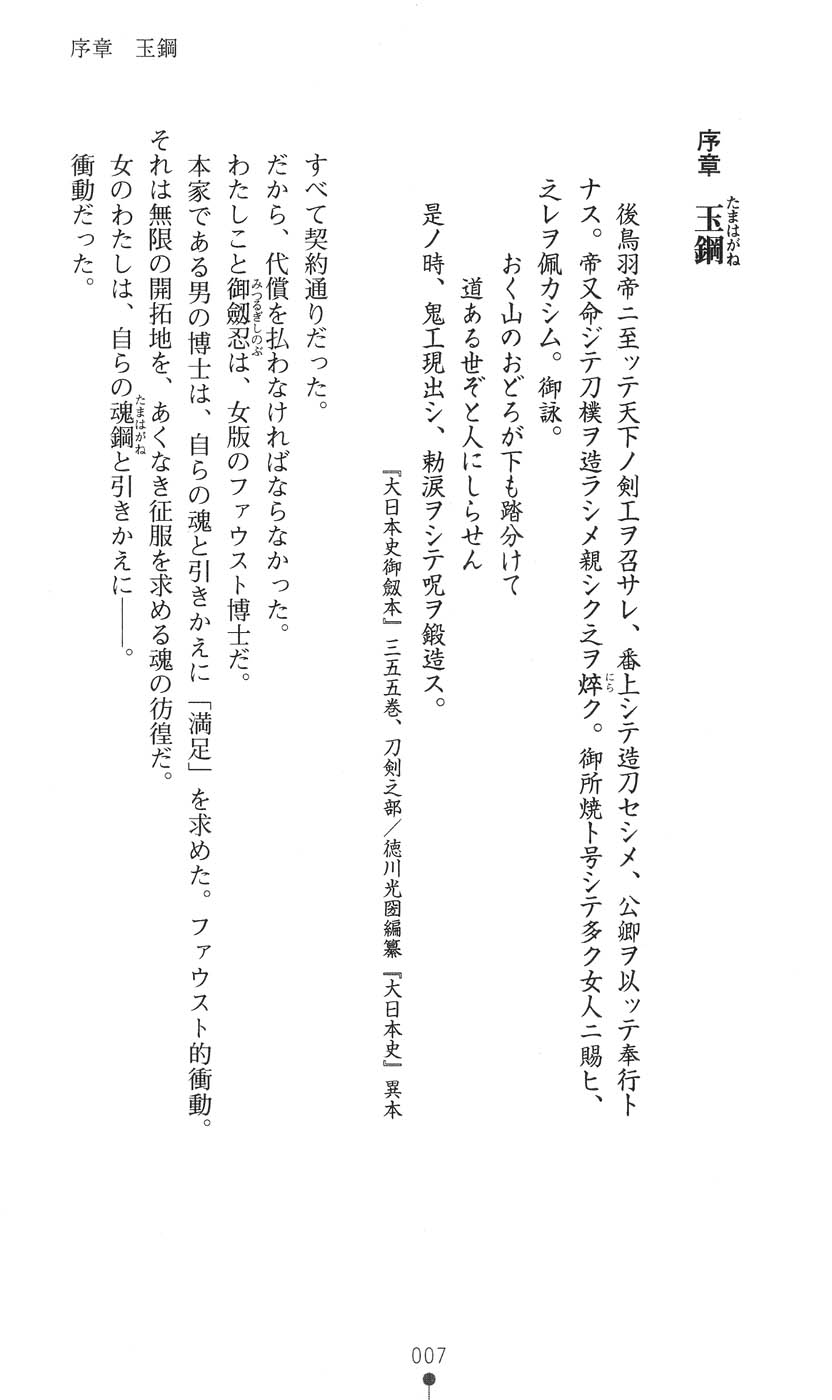 序章　玉鋼
序章　玉鋼
たまはがね
後鳥羽帝ニ至ッテ天下ノ剣工ヲ召サレ、番上シテ造刀セシメ、公卿ヲ以ッテ奉行ト
ナス。帝又命ジテ刀樸ヲ造ラシメ親シク之ヲ焠ク。御所焼ト号シテ多ク女人ニ賜ヒ、
にら
之レヲ佩カシム。御詠。
おく山のおどろが下も踏分けて
道ある世ぞと人にしらせん
是ノ時、鬼工現出シ、勅涙ヲシテ呪ヲ鍛造ス。
『大日本史御劔本』三五五巻、刀剣之部／徳川光圀編纂『大日本史』異本
すべて契約通りだった。
だから、代償を払わなければならなかった。
わたしこと御劔忍は、女版のファウスト博士だ。
みつるぎしのぶ
本家である男の博士は、自らの魂と引きかえに「満足」を求めた。ファウスト的衝動。
それは無限の開拓地を、あくなき征服を求める魂の彷徨だ。
女のわたしは、自らの魂鋼と引きかえに――。
たまはがね
衝動だった。
007